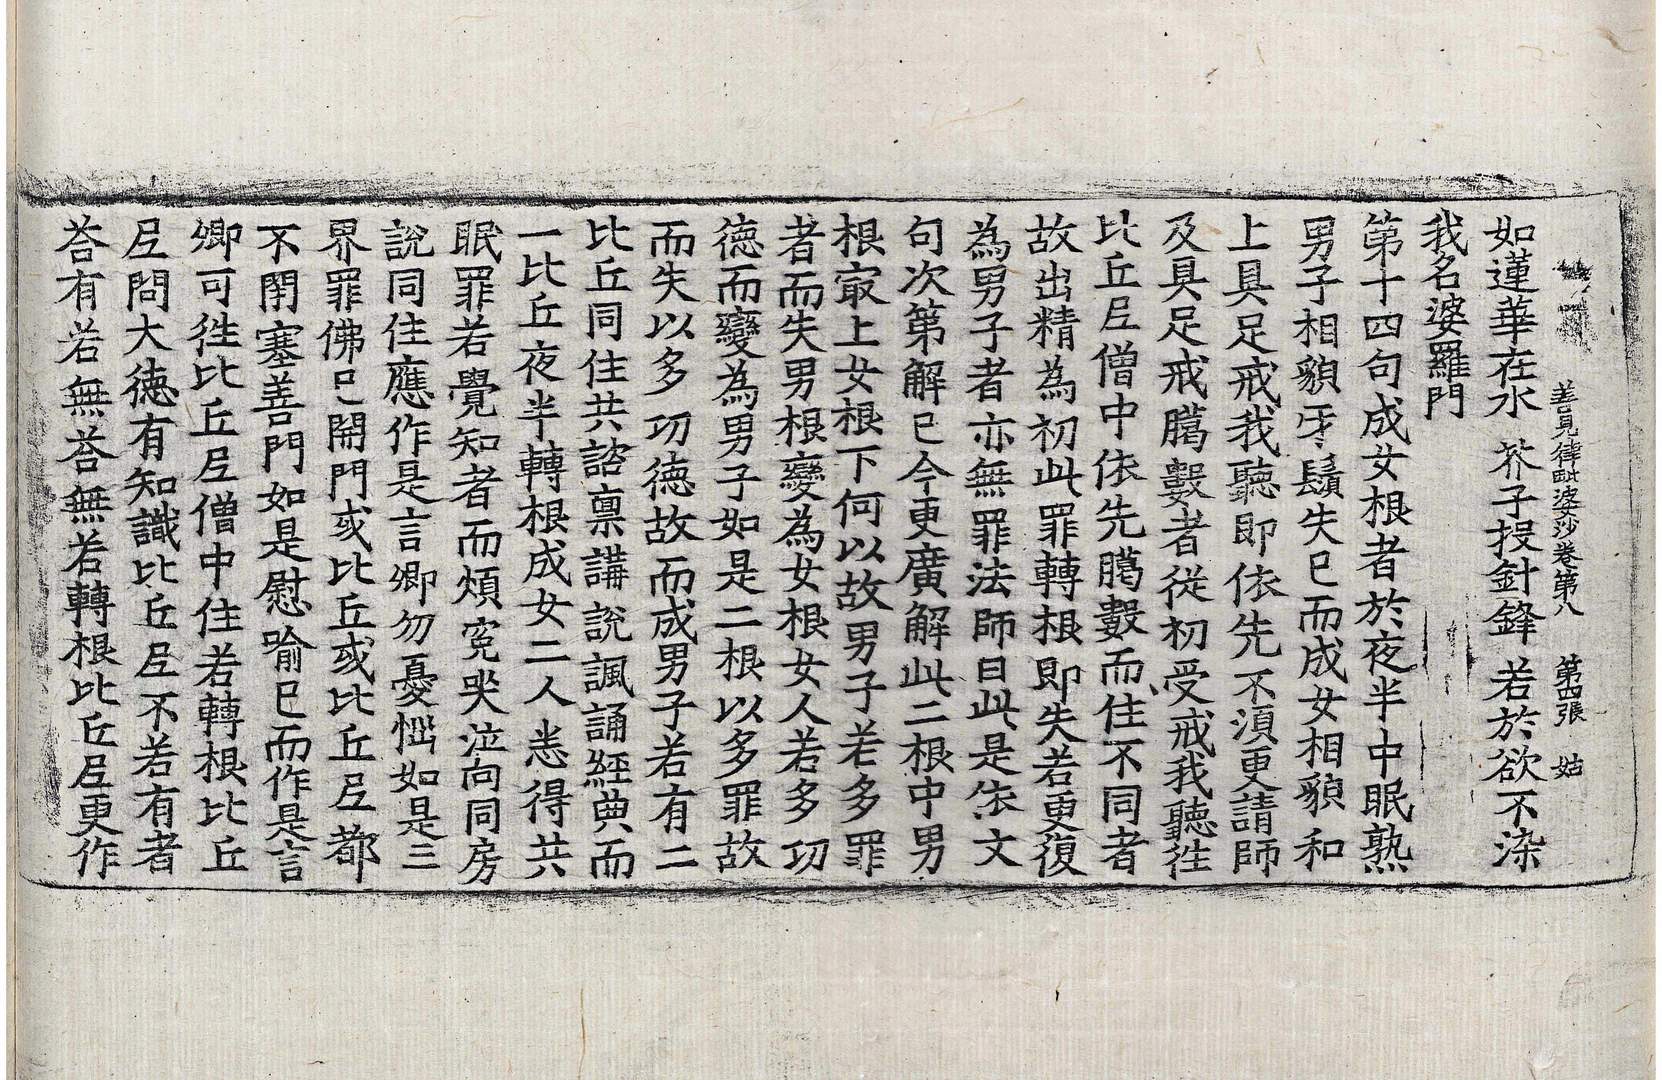 善見律毗婆沙卷第八 第四張 姑
如蓮華在水 芥子投針鋒 若於欲不染
我名婆羅門
第十四句成女根者於夜半中眠熟
男子相貌牙鬚失已而成女相貌和
上具足戒我聽即依先不須更請師
及具足戒臈數者從初受戒我聽往
比丘尼僧中依先臈數而住不同者
故出精為初此罪轉根即失若更復
為男子者亦無罪法師曰此是依文
句次第解已今更廣解此二根中男
根冣上女根下何以故男子若多罪
者而失男根變為女根女人若多功
德而變為男子如是二根以多罪故
而失以多功德故而成男子若有二
比丘同住共諮稟講說諷誦經典而
一比丘夜半轉根成女二人悉得共
眠罪若覺知者而煩寃哭泣向同房
說同住應作是言卿勿憂惱如是三
界罪佛已開門或比丘或比丘尼都
不閉塞善門如是慰喻已而作是言
卿可徃比丘尼僧中住若轉根比丘
尼問大德有知識比丘尼不若有者
荅有若無荅無若轉根比丘尼更作